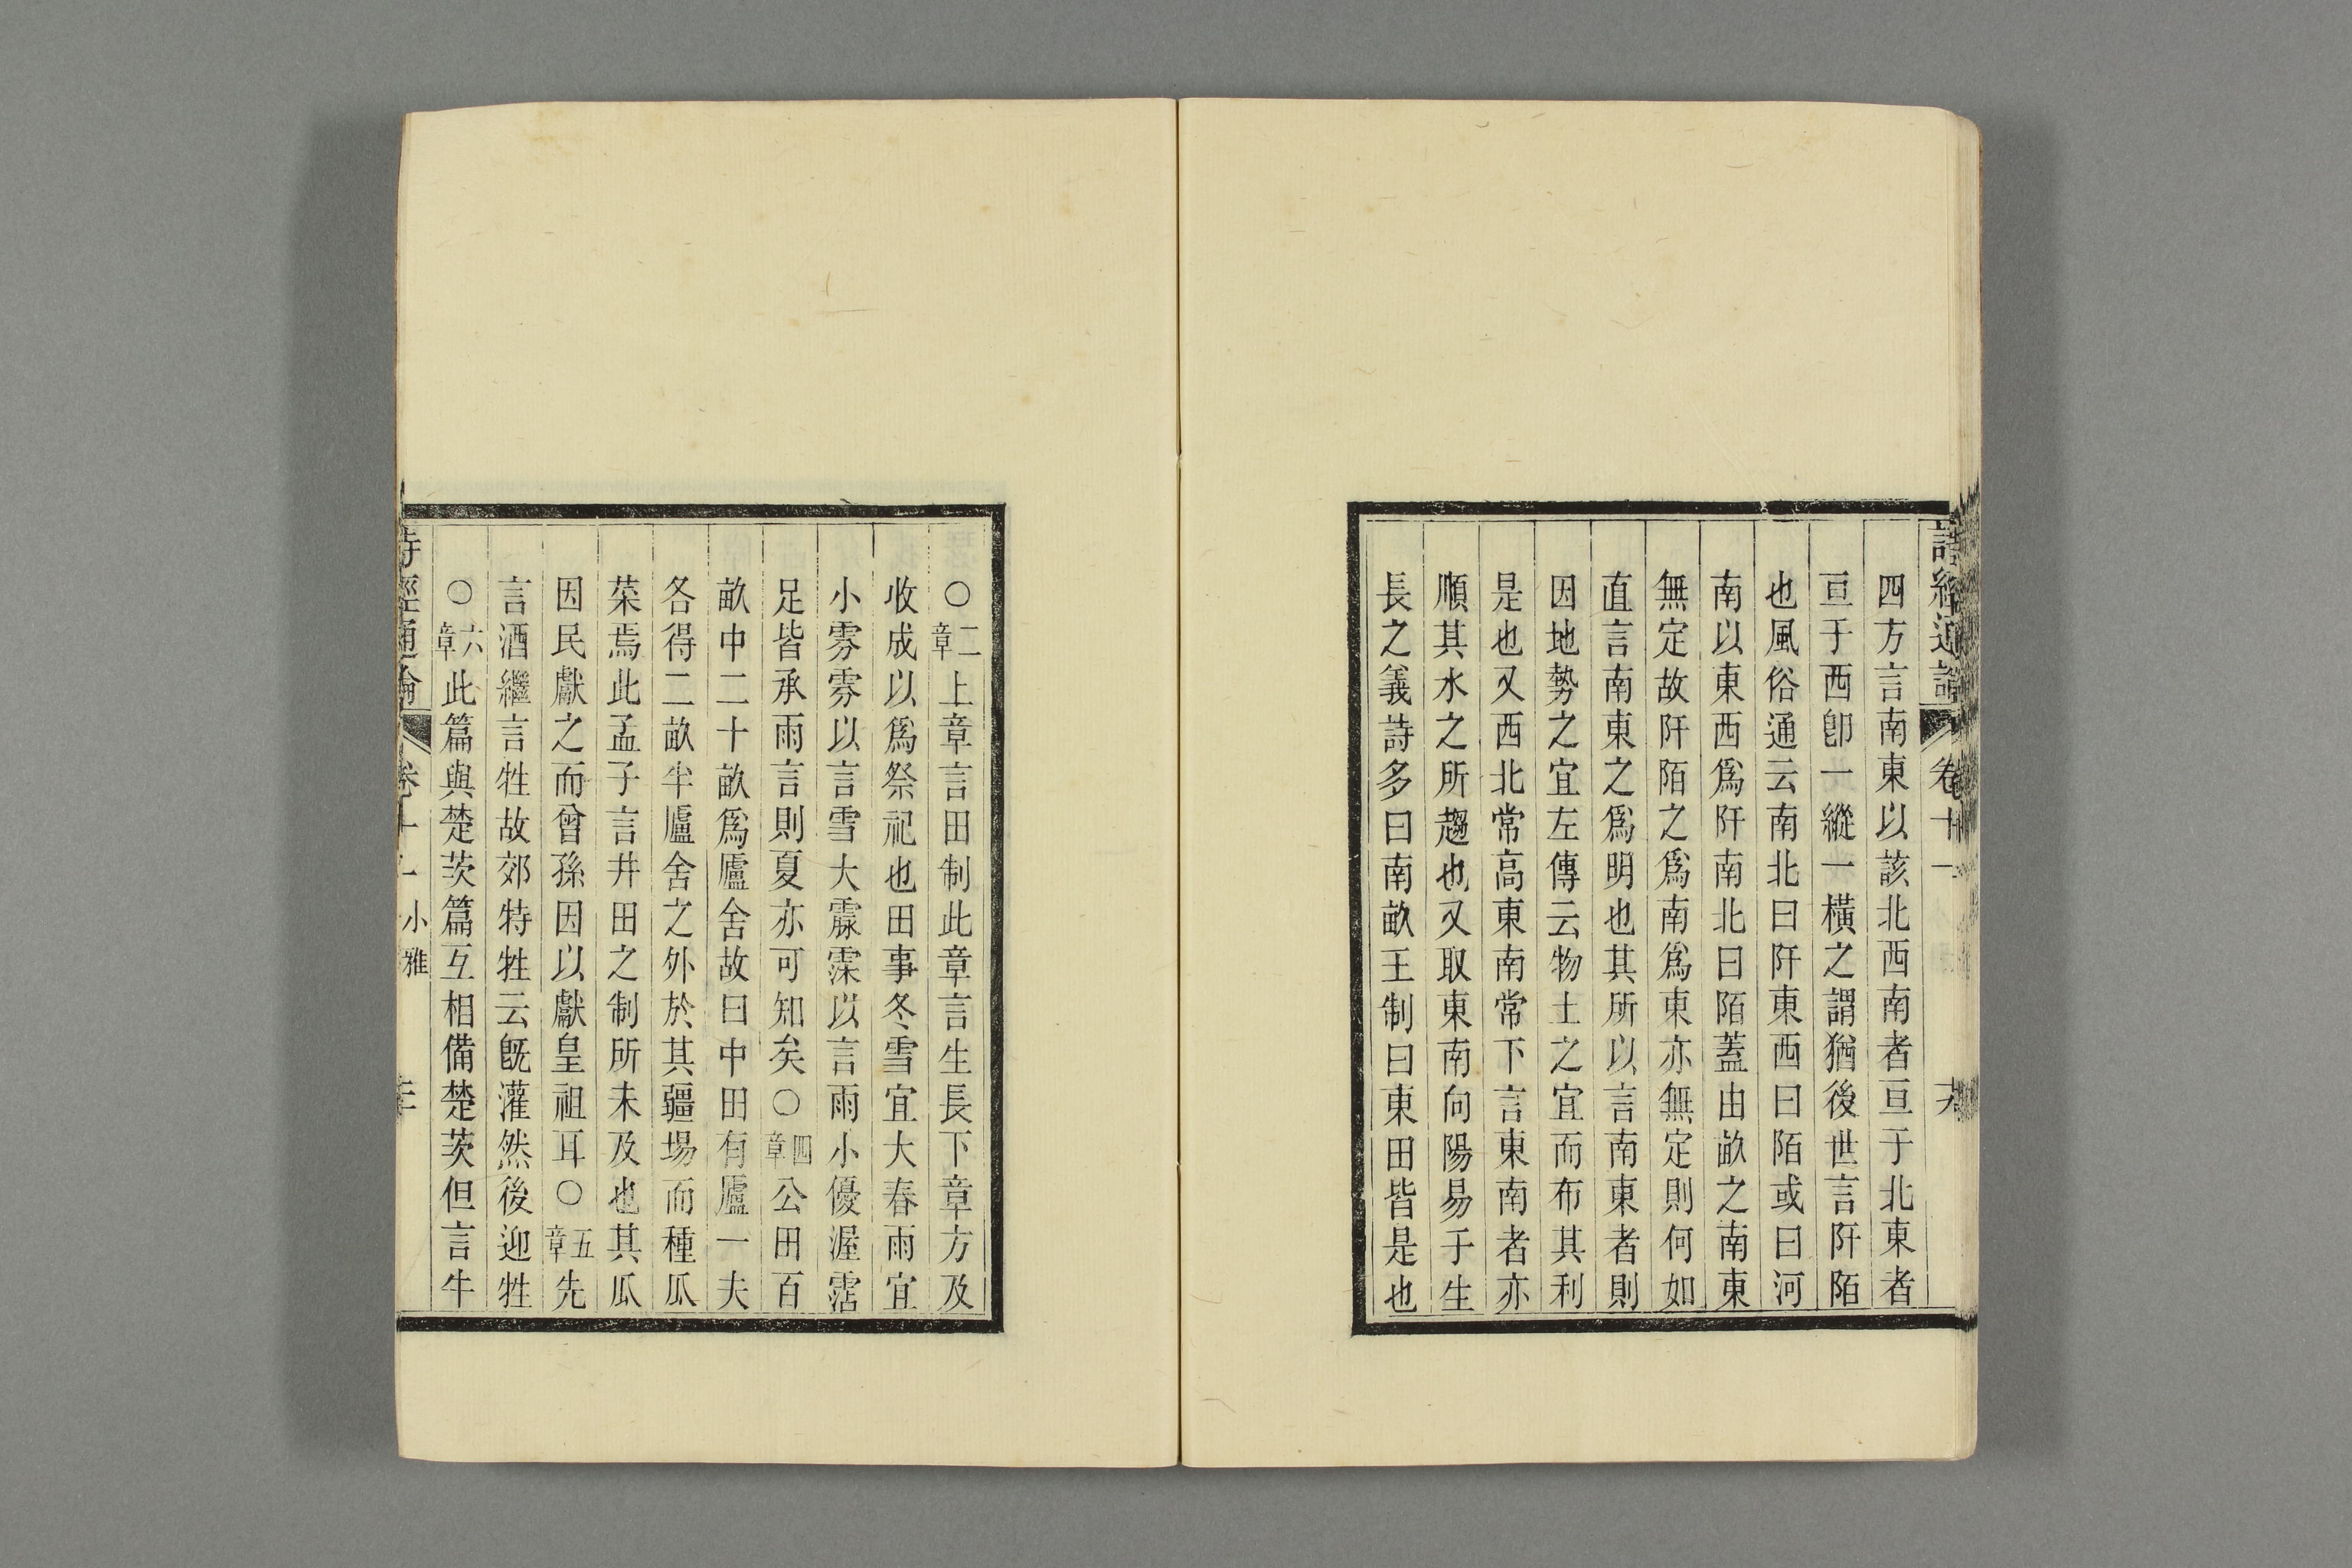 詩經通論 卷十一
四方言南東以該北西南者亘于北東者
亘于西卽一縱一橫之謂猶後世言阡陌
也風俗通云南北曰阡東西曰陌或曰河
南以東西爲阡南北曰陌蓋由畝之南東
無定故阡陌之爲南爲東亦無定則何如
直言南東之爲明也其所以言南東者則
因地勢之宜左傳云物土之宜而布其利
是也又西北常高東南常下言東南者亦
順其水之所趨也又取東南向陽易于生
長之義詩多曰南畝王制曰東田皆是也
○二章上章言田制此章言生長下章方及
收成以爲祭祀也田事冬雪宜大春雨宜
小雰雰以言雪大霡霂以言雨小優渥霑
足皆承雨言則夏亦可知矣○四章公田百
畝中二十畝爲廬舍故曰中田有廬一夫
各得二畝半廬舍之外於其疆埸而種瓜
菜焉此孟子言井田之制所未及也其瓜
因民獻之而曾孫因以獻皇祖耳○五章先
言酒繼言牲故郊特牲云旣灌然後迎牲
○六章此篇與楚茨篇互相備楚茨但言牛
詩經通論 卷十一 小雅